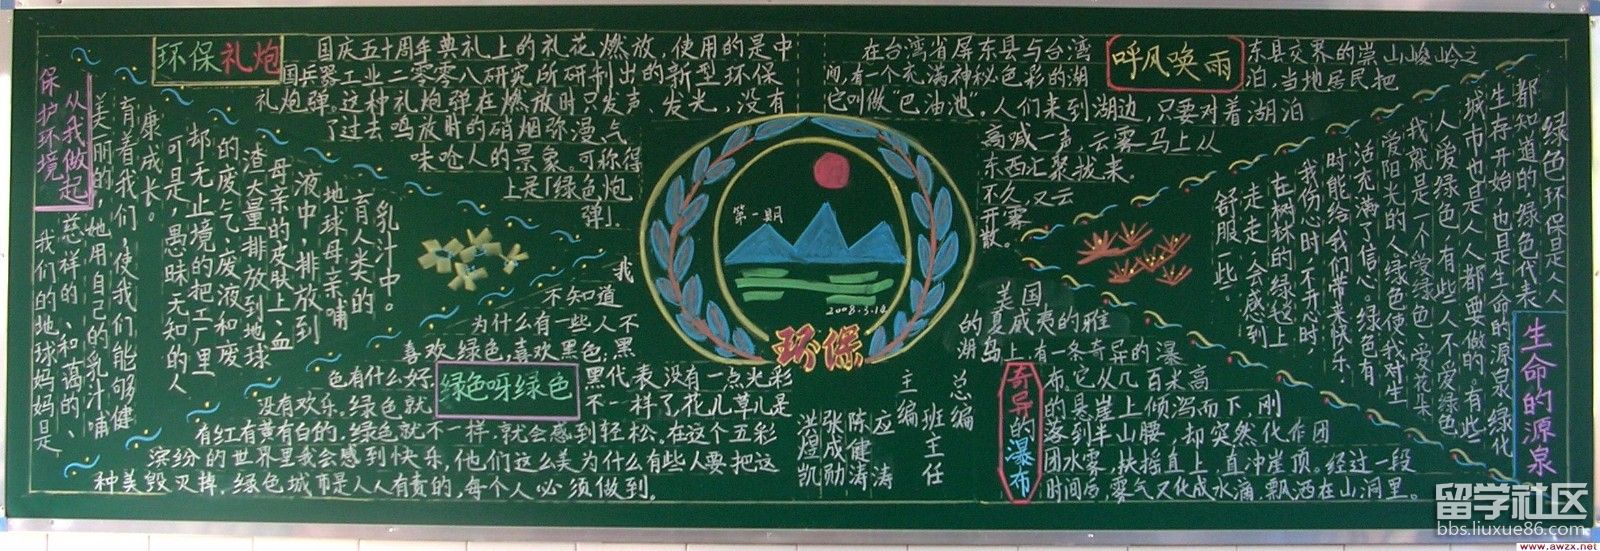 环保礼炮
国庆五十周年典礼上的礼花燃放,使用的是中
国兵器工业二零零八研究所研制出的新型环保
礼炮弹。这种礼炮弹在燃放时只发声、发光,没有
了过去鸣放时的硝烟弥漫气
味呛人的景象。可称得
上是「绿色炮
弹」
呼风唤雨
在台湾省屏东县与台湾
东县交界的崇山峻岭之
间,有一个充满神秘色彩的湖
泊,当地居民把
它叫做“巴油池”。人们来到湖边,只要对着湖泊
高喊一声,云雾马上从
东西汇聚拢来。
不久,又云
开雾
散。
保护环境
从我做起
我们的地球妈妈是
慈祥的、和蔼的、
美丽的,她用自己的乳汁哺
育着我们,使我们能够健
康成长。
可是,愚昧无知的人
却无止境的把工厂里
的废气、废液和废
渣大量排放到地球
母亲的皮肤上,血
液中,排放到
地球母亲哺
育人类的
乳汁中。
第一期
2008.3.14
环保
生命的源泉
绿色环保是人人
都知道的,绿色代表
生命的源泉,绿化
生存开始,也是
城市也是人人都要做的。有些
人爱绿色,有些人不爱绿色
我就是一个爱绿色、爱花朵
爱阳光的人,绿色使我对生
活充满了信心。绿色有
时能给我们带来快乐,
我伤心时,不开心时,
在树林的绿径上
走一走,会感到
舒服一些。
绿色呀绿色
我
不知道
为什么有一些人不
喜欢绿色,喜欢黑色;黑
色有什么好,
黑代表没有一点光彩
没有欢乐。绿色就
不一样了,花儿草儿是
有红有黄有白的,绿色就不一样,就会感到轻松。在这个五彩
缤纷的世界里我会感到快乐,他们这么美为什么有些人要把这
种美毁灭掉。绿色城市是人人有责的,每个人必须做到。
总编
班主任
主编
应涛
陈健涛
张成勋
洪煌凯
奇异的瀑布
美国
的夏威夷的雅
湖岛上有一条奇异的瀑
布。它从几百米高
的悬崖上倾泻而下,刚
落到半山腰,却突然化作团
团水雾,扶摇直上,直冲崖顶。经过一段
时间后,雾气又化成水滴,飘洒在山洞里。
留学社区
bbs.liuxue86.com
www.awzx.net